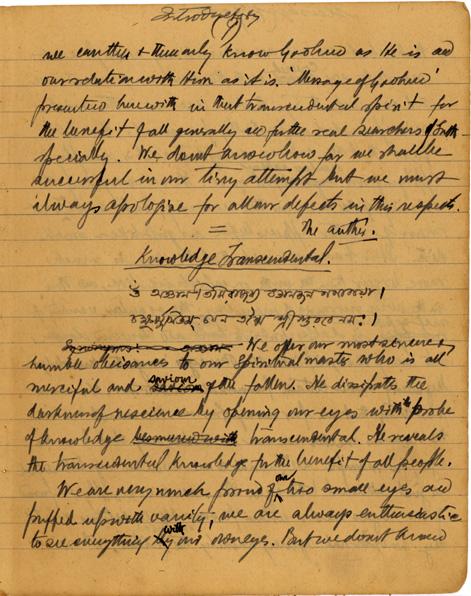 Introductory
(1)
we can then & then only know Godhead as He is and
our relation with Him as it is. 'Message of Godhead'
presented herewith in that transcendental spirit for
the benefit of all generally and for the real searchers of Truth
specially. We do not know how far we shall be
successful in our tiny attempt but we must
always apologise for all our defects in this respects.
The author.
Knowledge Transcendental.
ওঁ অজ্ঞান তিমিরান্ধস্য জ্ঞানাঞ্জন শলাকয়া।
চক্ষুরুন্মিলিতং যেন তস্মৈ শ্রীগুরবে নমঃ।
We offer our most sincere &
humble obeisances to our Spiritual master who is all
merciful and saviour of the fallen. He dissipates the
darkness of nescience by opening our eyes with the probe
of knowledge besmeared with transcendental. He reveals
the transcendental knowledge for the benefit of all people.
We are very much proud of our two small eyes and
puffed up with vanity, we are always enthusiastic
to see everything with our own eyes. But we do not know